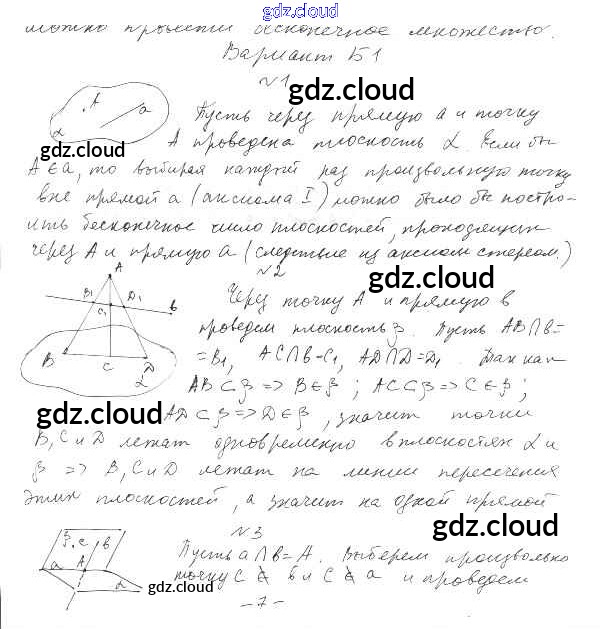 gdz.cloud
можно провести бесконечное множество.
Вариант Б1
N1
gdz.cloud
A a α
Пусть через прямую a и точку
gdz.cloud
A проведена плоскость α. Если бы
A ∈ a, то выбирая каждый раз произвольную точку
вне прямой a (аксиома I) можно было бы постро-
ить бесконечное число плоскостей, проходящих
через A и прямую a (следствие из аксиом стереом.)
N2
gdz.cloud
A B1 C1 D1 b B C D α
Через точку A и прямую b
проведем плоскость β. Пусть AB∩b=
=B1, AC∩b=C1, AD∩D=D1. Так как
AB⊂β => B∈β; AC⊂β => C∈β;
gdz.cloud
AD⊂β => D∈β, значит точки
B, C и D лежат одновременно в плоскостях α и
β => B, C и D лежат на линии пересечения
этих плоскостей, а значит на одной прямой
gdz.cloud
N3
β c b a A α
Пусть a∩b=A. Выберем произвольно
точку C ∉ b и C ∉ a и проведем
gdz.cloud
-7-